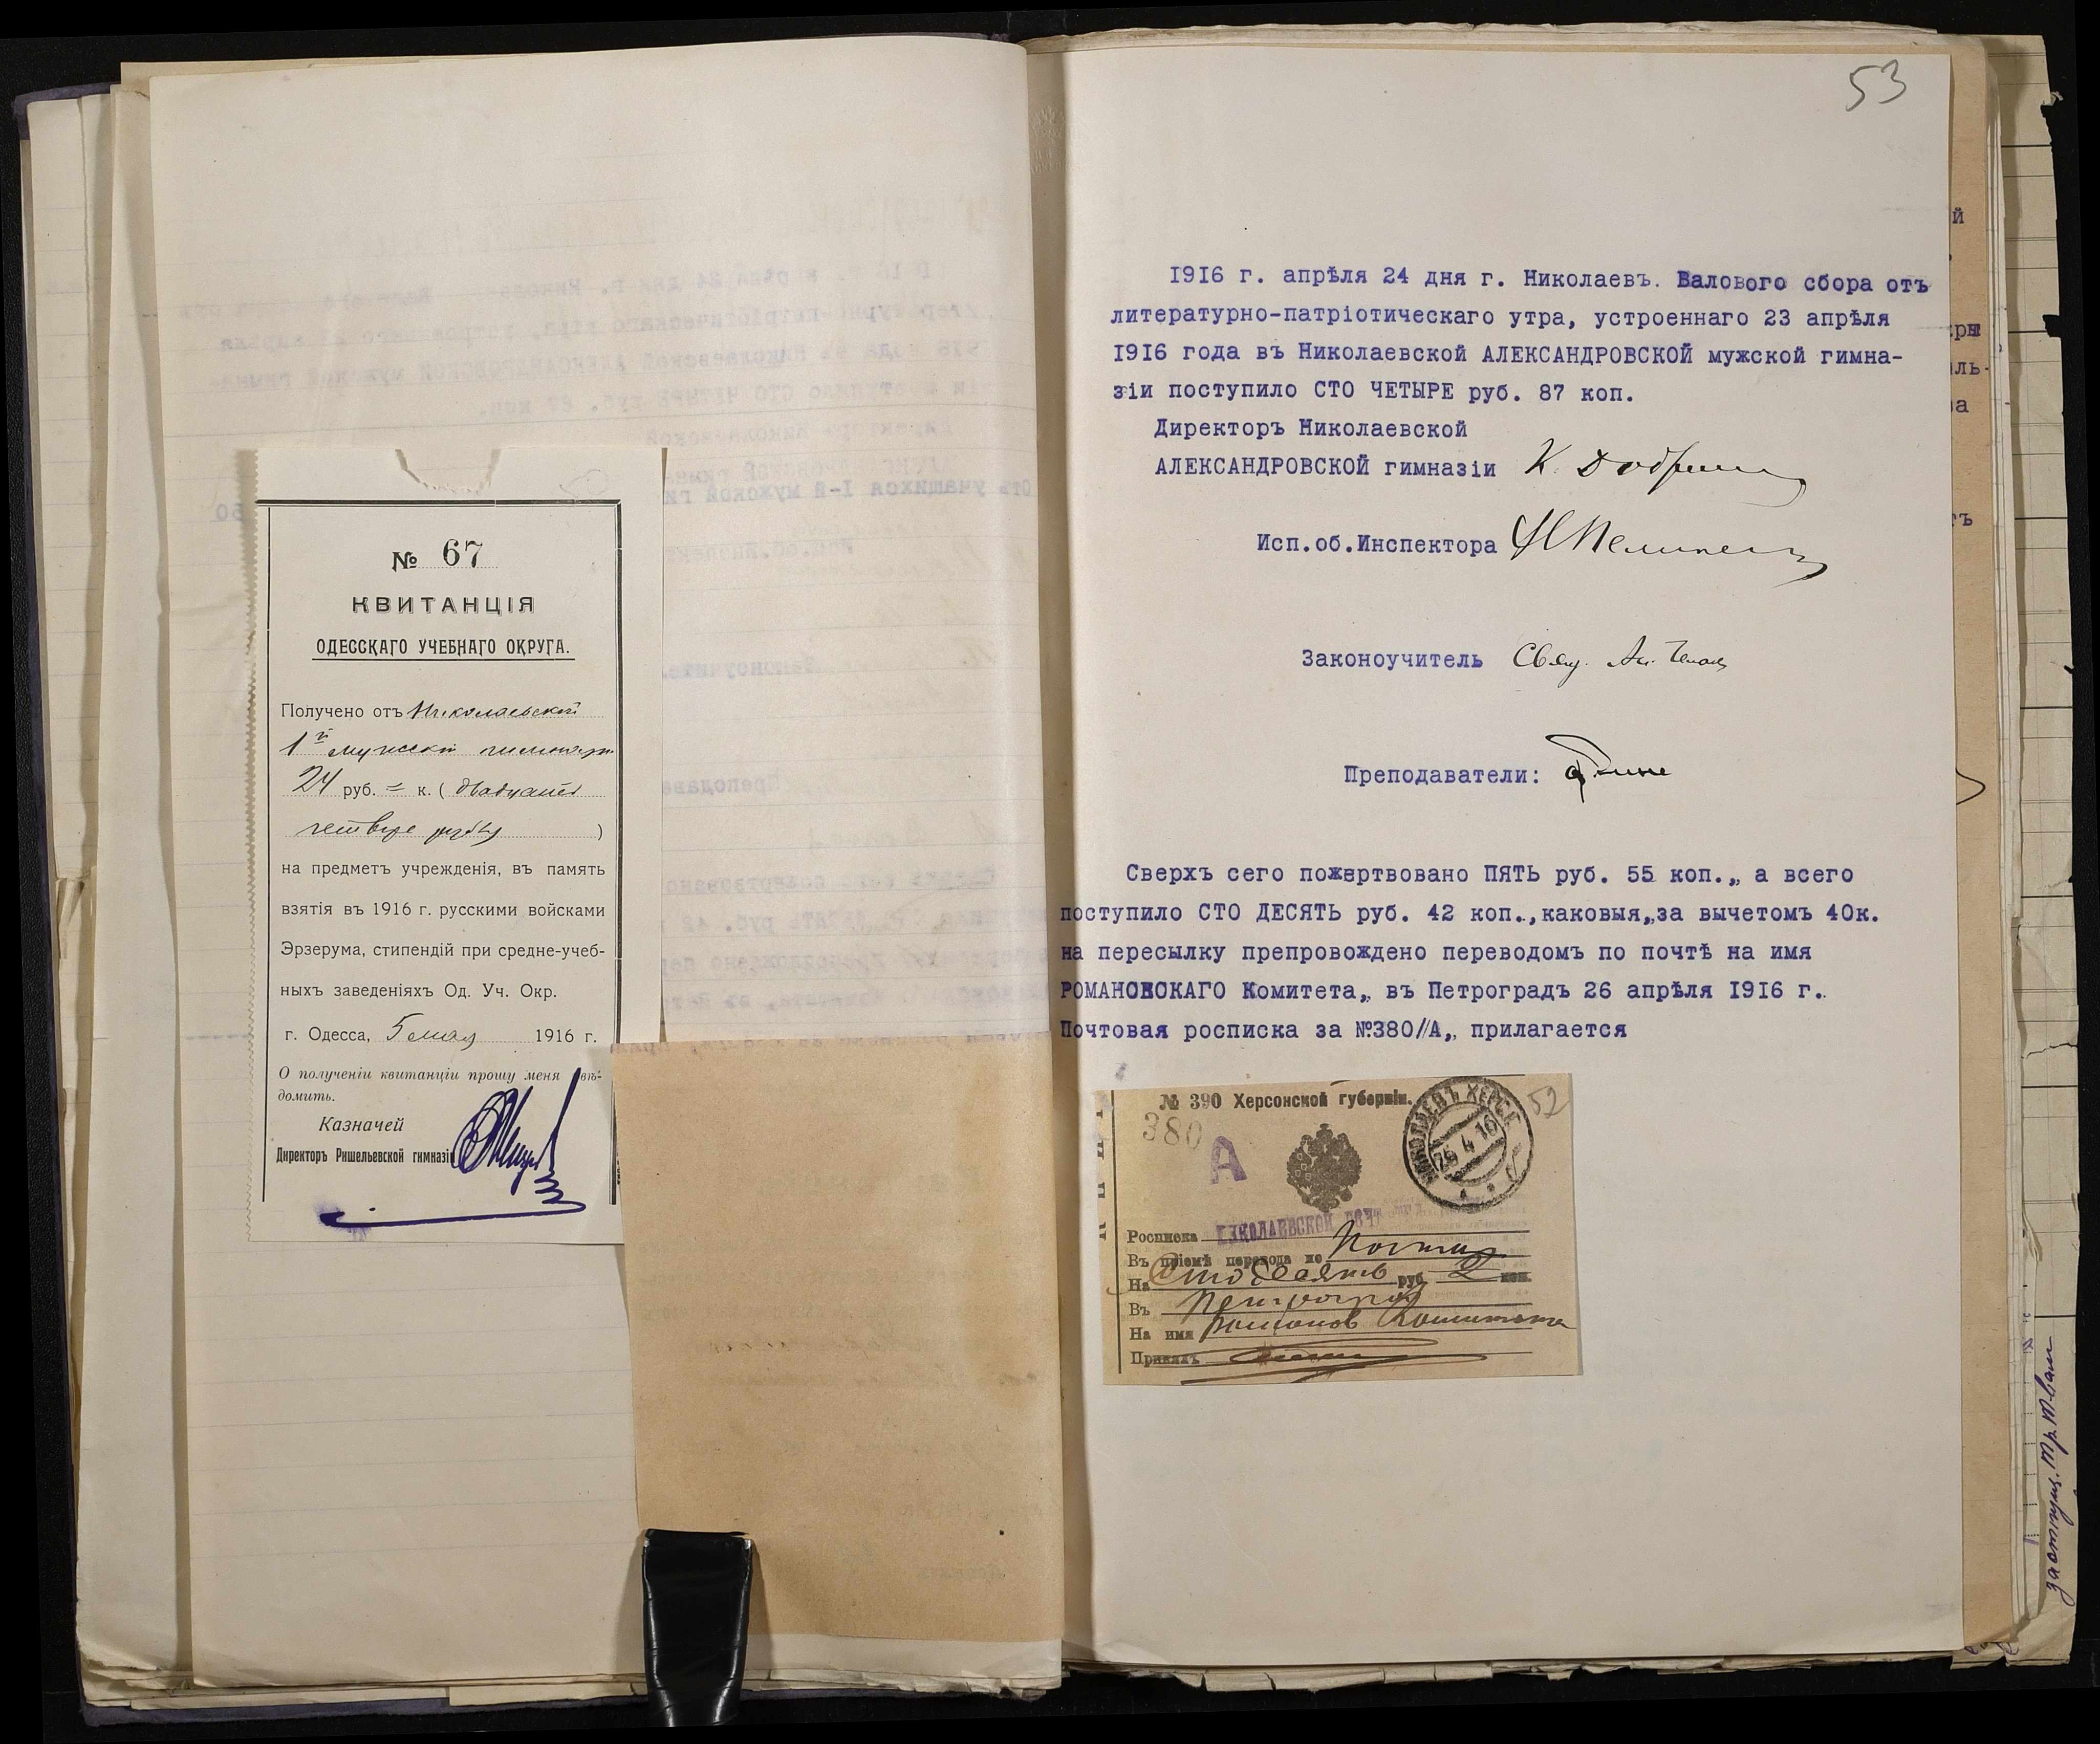 № 67
КВИТАНЦІЯ
ОДЕССКАГО УЧЕБНАГО ОКРУГА.
Получено отъ Николаевской
1й мужской гимназіи
24 руб. = к. (двадцать
четыре рубля)
на предметъ учрежденія, въ память
взятія въ 1916 г. русскими войсками
Эрзерума, стипендій при средне-учеб-
ныхъ заведеніяхъ Од. Уч. Окр.
г. Одесса, 5 мая 1916 г.
О полученіи квитанціи прошу меня увѣ-
домить.
Казначей
Директоръ Ришельевской гимназіи
53
1916 г. апрѣля 24 дня г. Николаевъ. Валового сбора отъ
литературно-патріотическаго утра, устроеннаго 23 апрѣля
1916 года въ Николаевской АЛЕКСАНДРОВСКОЙ мужской гимна-
зіи поступило СТО ЧЕТЫРЕ руб. 87 коп.
Директоръ Николаевской
АЛЕКСАНДРОВСКОЙ гимназіи К.
Исп.об.Инспектора
Законоучитель Свящ. Ал.
Преподаватели:
Сверхъ сего пожертвовано ПЯТЬ руб. 55 коп.,, а всего
поступило СТО ДЕСЯТЬ руб. 42 коп.,каковыя,,за вычетомъ 40к.
на пересылку препровождено переводомъ по почтѣ на имя
РОМАНОВСКАГО Комитета,, въ Петроградъ 26 апрѣля 1916 г.
Почтовая росписка за №380//А,, прилагается
№ 390 Херсонской губерніи.
380
А
52
НИКОЛАЕВЪ ХЕРС.
26 4 16
Росписка НИКОЛАЕВСКОЙ ПОЧТ
Въ пріемѣ перевода по Почтѣ
На Сто десять руб. 2 коп.
Въ Петроградъ
На имя Романов Комитета
Принялъ